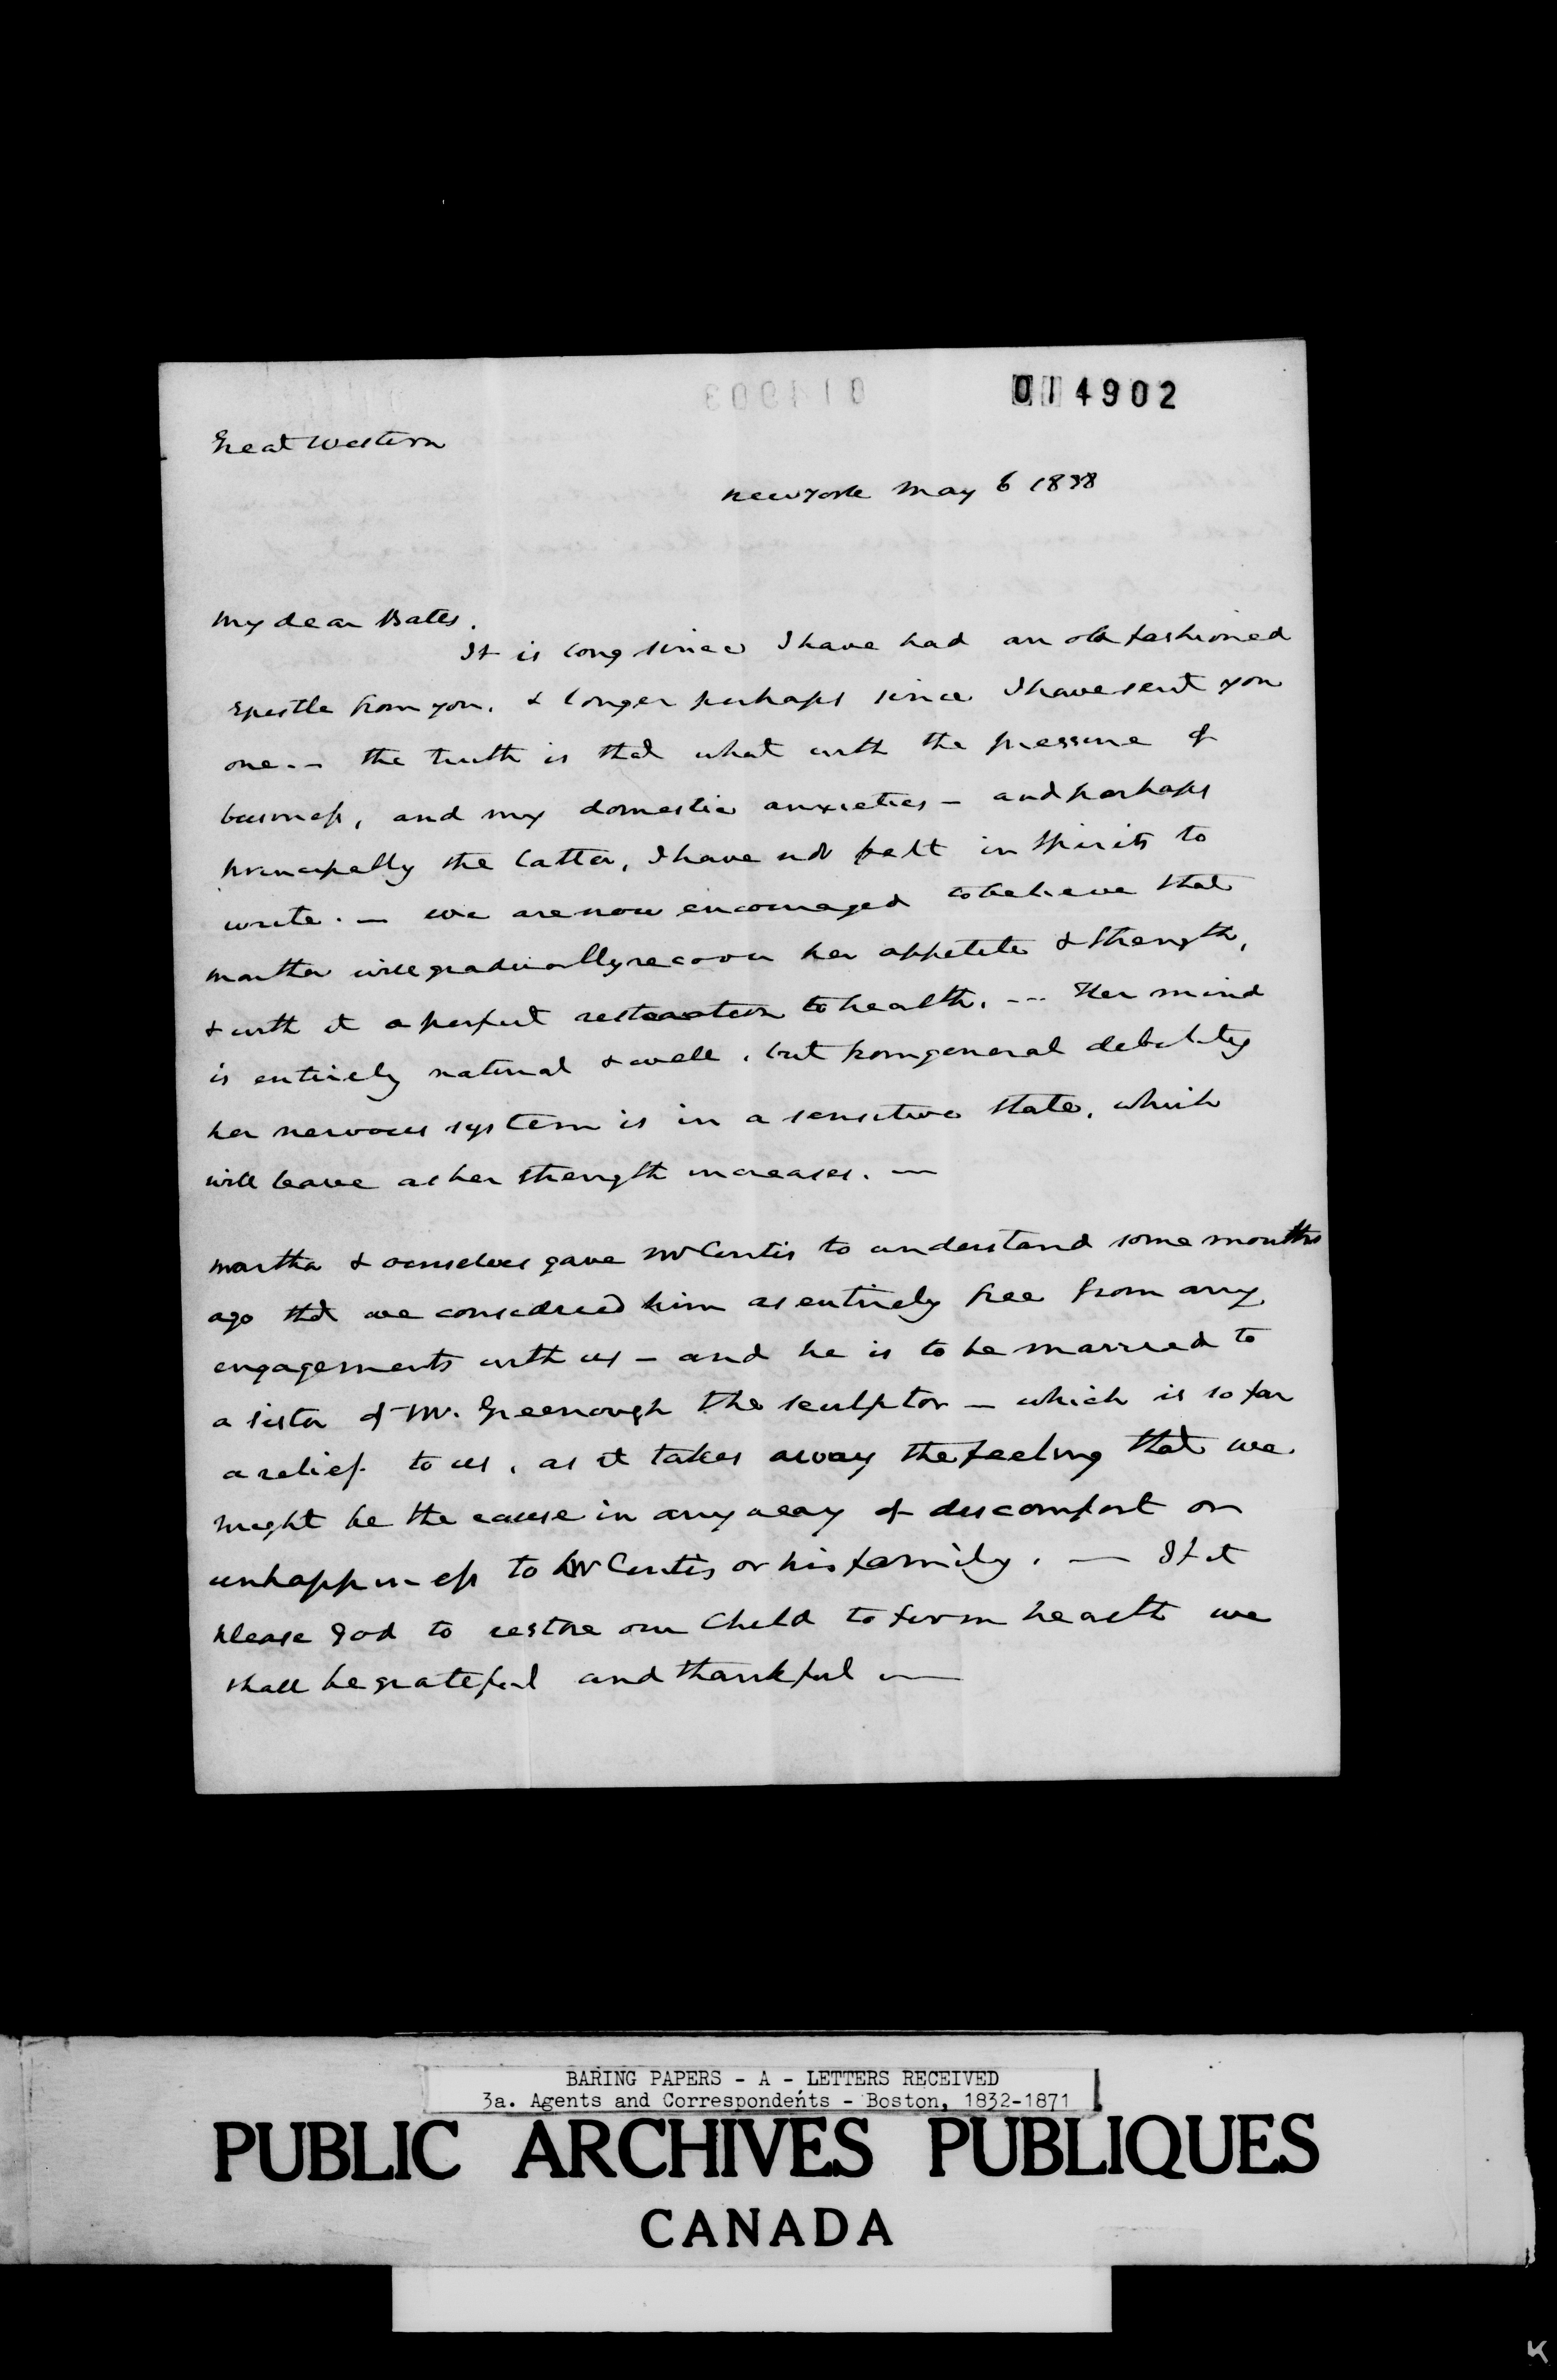 014902
Great Western
New York May 6 1838
My dear Bates.
It is long since I have had an old fashioned
epistle from you, & longer perhaps since I have sent you
one. - the truth is that what with the pressure of
business, and my domestic anxieties - and perhaps
principally the latter, I have not felt in spirits to
write. - we are now encouraged to believe that
Martha will gradually recover her appetite & strength,
& with it a perfect restoration to health. -- Her mind
is entirely natural & well, but from general debility
her nervous system is in a sensitive state, which
will leave as her strength increases. -
Martha & ourselves gave Mr Curtis to understand some months
ago that we considered him as entirely free from any
engagements with us - and he is to be married to
a sister of Mr. Greenough the sculptor - which is so far
a relief to us, as it takes away the feeling that we
might be the cause in any way of discomfort or
unhappiness to Mr Curtis or his family. - If it
please God to restore our Child to firm health we
shall be grateful and thankful -
BARING PAPERS - A - LETTERS RECEIVED
3a. Agents and Correspondents - Boston, 1832-1871
PUBLIC ARCHIVES PUBLIQUES
CANADA